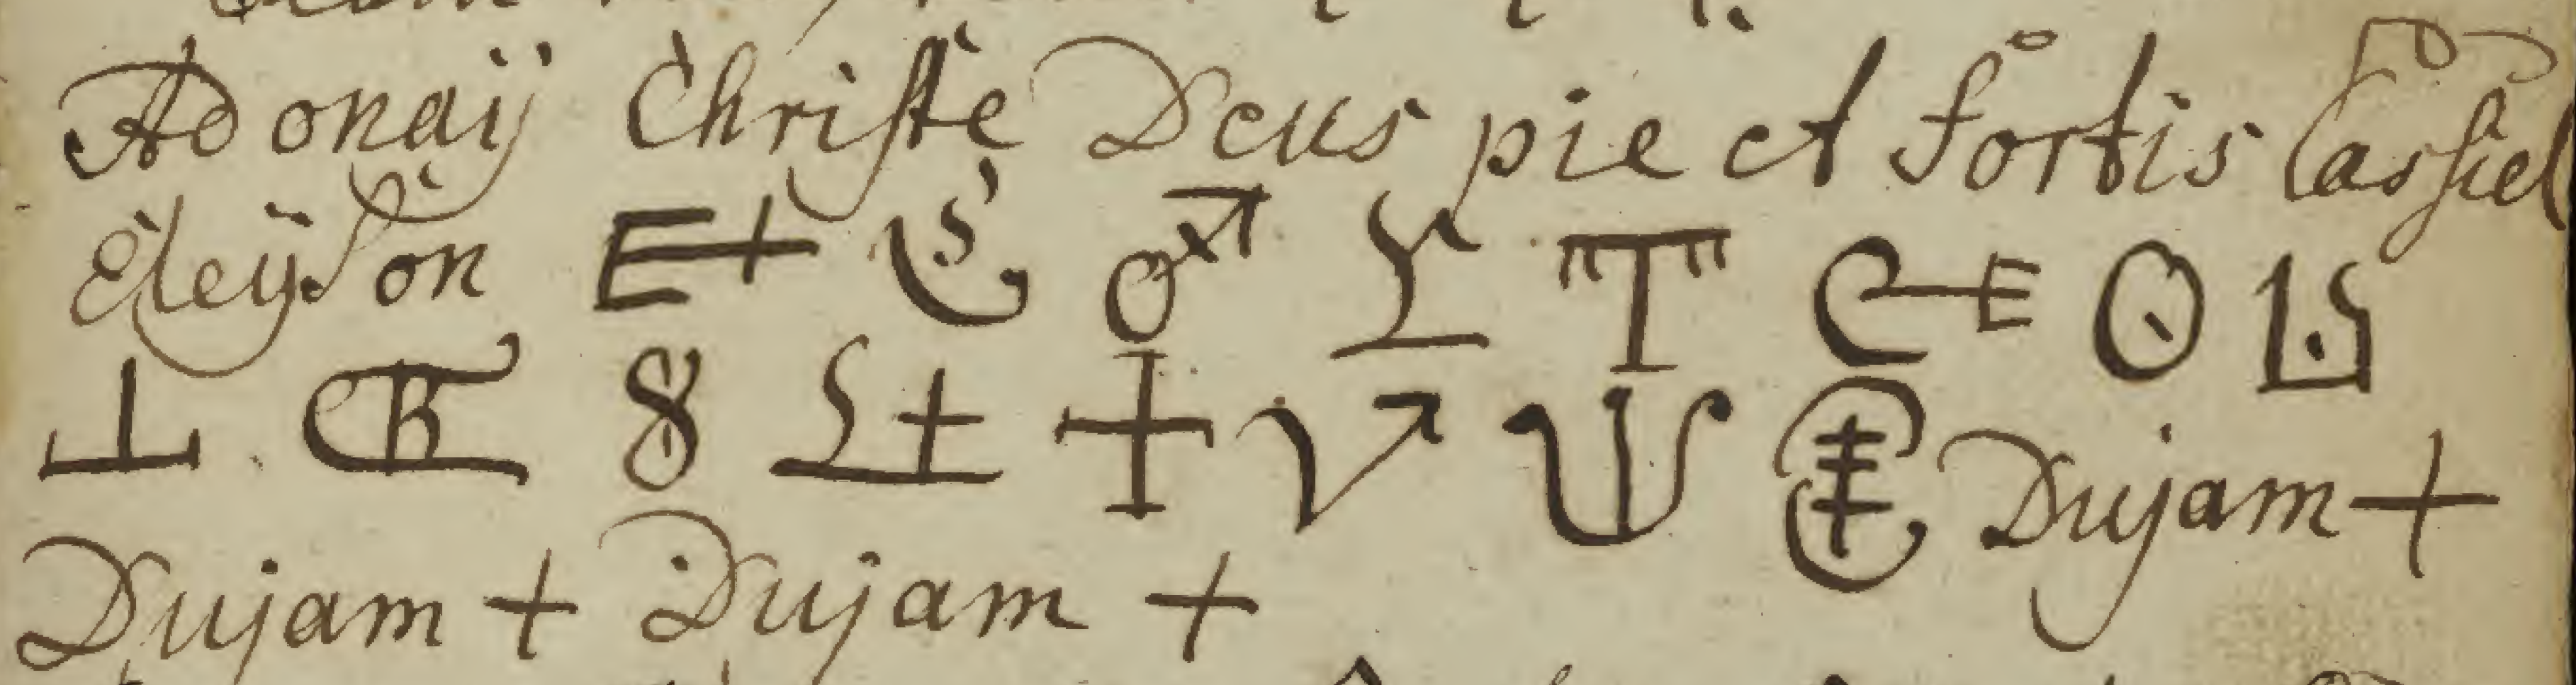 Adonaij Christe Deus pie et fortis Cassiel
Eleyson
Dujam +
Dujam + Dujam +